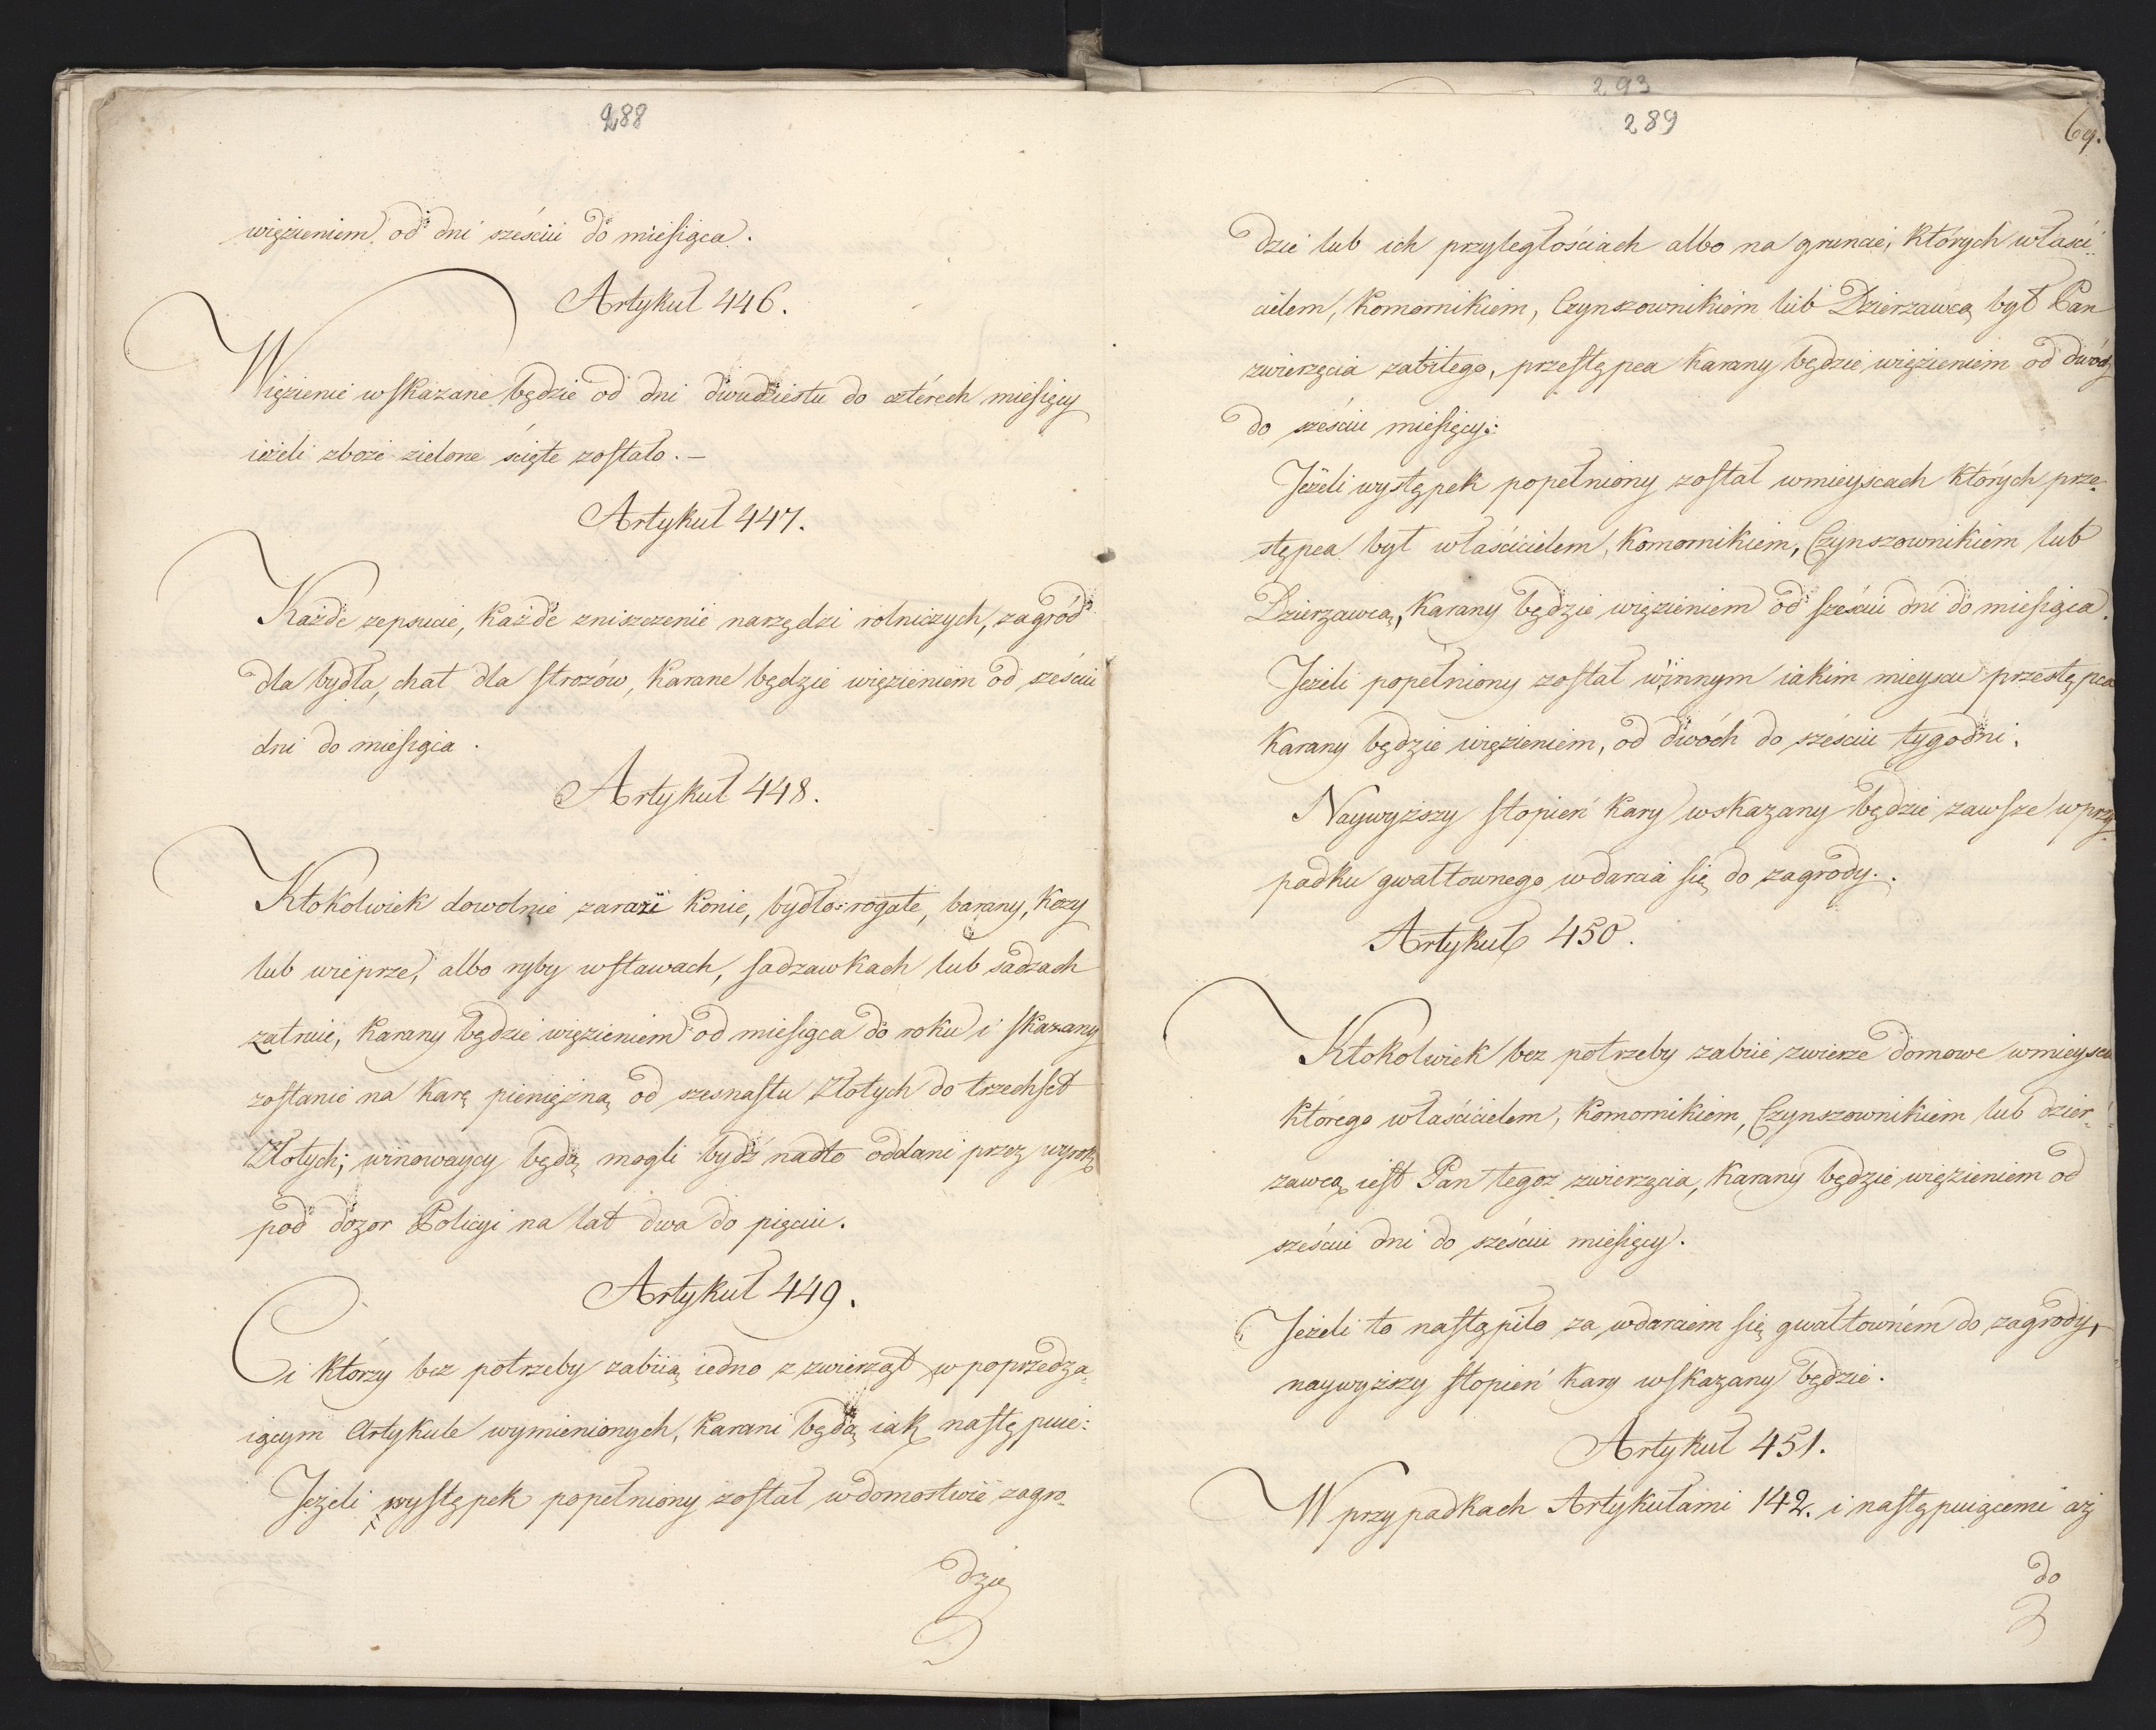 288
więzieniem od dni sześciu do miesiąca.
Artykuł 446.
Więzienie wskazane będzie od dni dwudziestu do czterech miesięcy
ieżeli zboże zielone ścięte zostało. –
Artykuł 447.
Każde zepsucie, każde zniszczenie narzędzi rolniczych, zagród
dla bydła, chat dla strożów, karane będzie więzieniem od sześciu
dni do miesiąca.
Artykuł 448.
Ktokolwiek dowolnie zarazi konie, bydło rogate, barany, kozy
lub wieprze, albo ryby w stawach, sadzawkach lub sadzach
zatruie, karany będzie więzieniem od miesiąca do roku i skazany
zostanie na karę pieniężną od szesnastu Złotych do trzechset
Złotych; winowaycy będą mogli bydź nadto oddani przez wyrok
pod dozor Policyi na lat dwa do pięciu.
Artykuł 449.
Ci którzy bez potrzeby zabiią iedno z zwierząt w poprzedza-
iącym Artykule wymienionych, karani będą iak następuie:
Jeżeli występek popełniony został w domostwie zagro-
dzie
293
289
69.
dzie lub ich przyległościach albo na gruncie, których właści-
cielem, komornikiem, Czynszownikiem lub Dzierzawcą był Pan
zwierzęcia zabitego, przestępca karany będzie więzieniem od dwóch
do sześciu miesięcy.
Jeżeli występek popełniony został w mieyscach których prze-
stępca był właścicielem, komornikiem, Czynszownikiem lub
Dzierzawcą, karany będzie więzieniem od sześciu dni do miesiąca.
Jeżeli popełniony został w innym iakim mieyscu przestępca
karany będzie więzieniem, od dwóch do sześciu tygodni.
Naywyższy stopień kary wskazany będzie zawsze w przy-
padku gwałtownego wdarcia się do zagrody.
Artykuł 450.
Ktokolwiek bez potrzeby zabiie zwierze domowe w mieyscu
którego właścicielem, komornikiem, Czynszownikiem lub dzier-
zawcą iest Pan tegoż zwierzęcia, karany będzie więzieniem od
sześciu dni do sześciu miesięcy.
Jeżeli to nastąpiło za wdarciem się gwałtowném do zagrody,
naywyższy stopień kary wskazany będzie.
Artykuł 451.
W przypadkach Artykułami 142. i następuiącemi aż
do